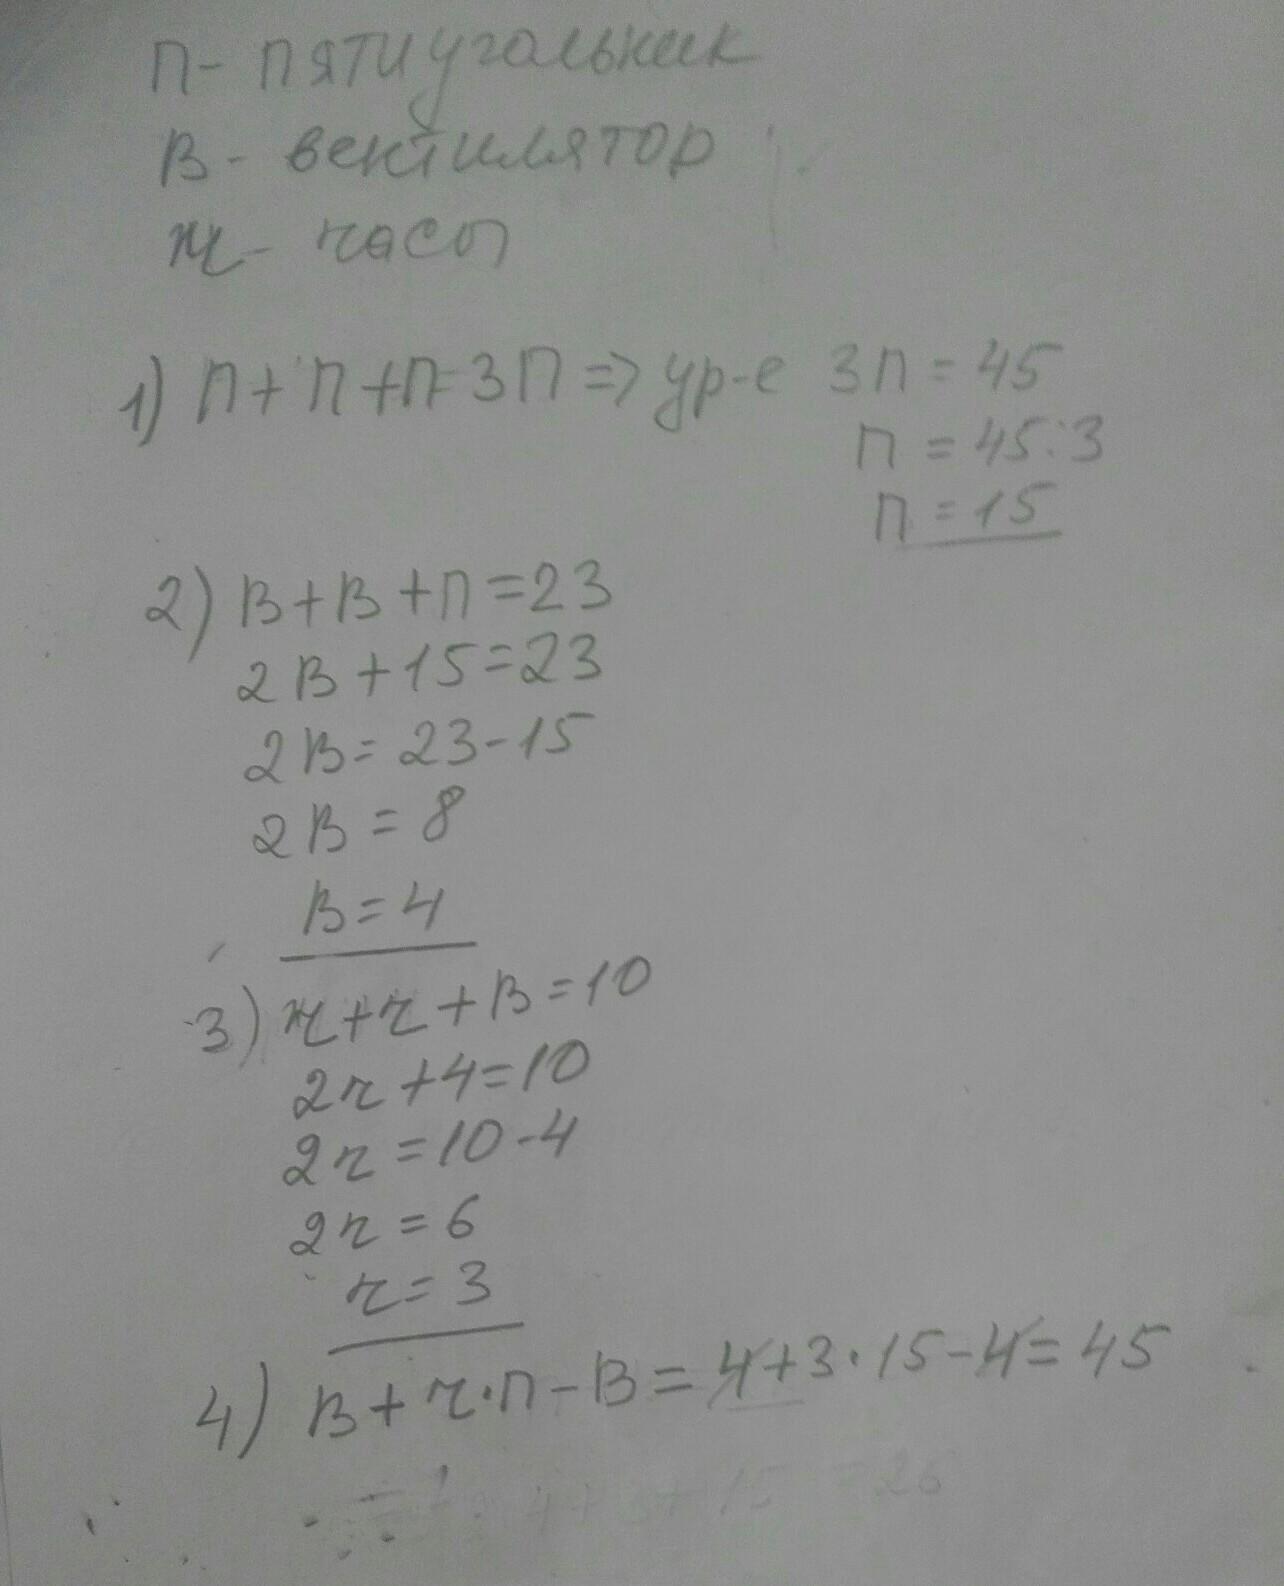 П - пятиугольник
В - вентилятор
ч - часы
1) П + П + П = 3П => ур-е 3П = 45
П = 45:3
П = 15
2) В + В + П = 23
2В + 15 = 23
2В = 23 - 15
2В = 8
В = 4
3) ч + ч + В = 10
2ч + 4 = 10
2ч = 10 - 4
2ч = 6
ч = 3
4) В + ч · П - В = 4 + 3 · 15 - 4 = 45
4 + 3 + 15 = 26